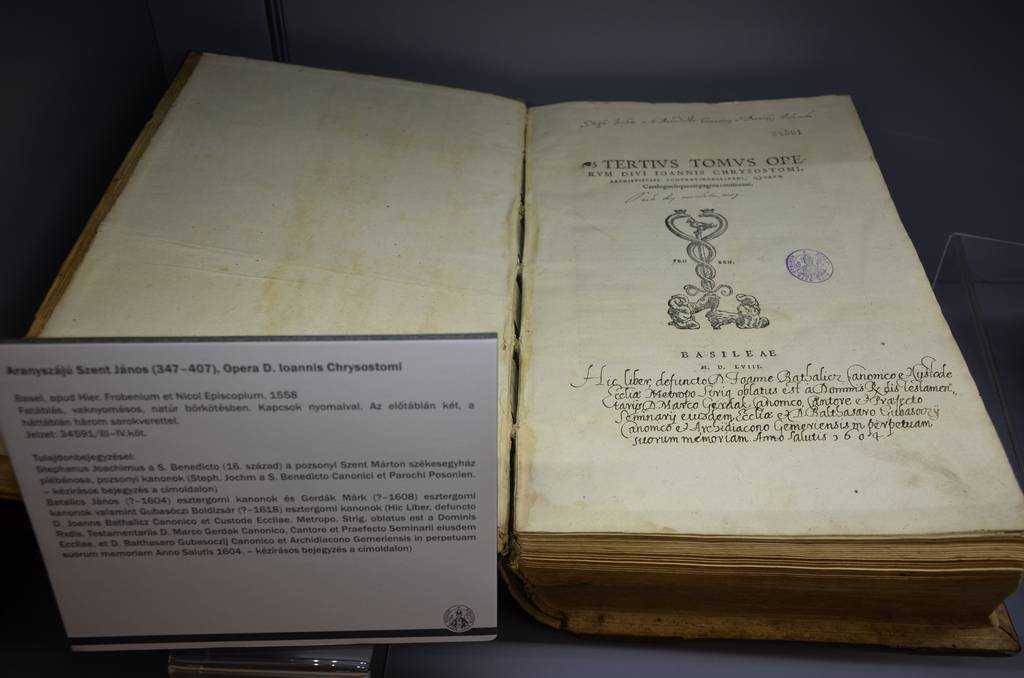 Aranyszájú Szent János (347–407), Opera D. Ioannis Chrysostomi
Basel, apud Hier. Frobenium et Nicol Episcopium, 1558
Fatáblás, vaknyomásos, natúr bőrkötésben. Kapcsok nyomaival. Az előtáblán két, a
háttáblán három sarokverettel.
Jelzet: 34591/III–IV.köt.
Tulajdonbejegyzései:
Stephanus Joachimus a S. Benedicto (16. század) a pozsonyi Szent Márton székesegyház
plébánosa, pozsonyi kanonok (Steph. Jochm a S. Benedicto Canonici et Parochi Posonien.
– kézírásos bejegyzés a címoldalon)
Batalics János (?–1604) esztergomi kanonok és Gerdák Márk (?–1608) esztergomi
kanonok valamint Gubasóczi Boldizsár (?–1618) esztergomi kanonok (Hic Liber, defuncto
D. Joanne Bathalicz Canonico et Custode Eccliae. Metropo. Strig. oblatus est a Dominis
Rxdis. Testamentariis D. Marco Gerdak Canonico, Cantore et Praefecto Seminarii eiusdem
Eccliae, et D. Balthesaro Gubasoczij Canonico et Archidiacono Gemeriensis in perpetuam
suorum memoriam Anno Salutis 1604. – kézírásos bejegyzés a címoldalon)
TERTIVS TOMVS OPE-
RVM DIVI IOANNIS CHRYSOSTOMI,
ARCHIEPISCOPI CONSTANTINOPOLITANI, QVORVM
Catalogum sequens pagina continebit.
FRO BEN.
BASILEAE
M. D. LVIII.
Hic liber, defuncto D. Joanne Bathalicz Canonico & Custode
Eccliæ Metropo Strig. oblatus est à Dominis Rxdis testamen
tarijs D. Marco Gerdak Canonico, Cantore et Præfecto
Seminarij eiusdem Ecclíæ et D. Balthasaro Gubasoczy
Canonico et Archidiacono Gemeriensis in perpetuam
suorum memoriam Anno salutis 1604